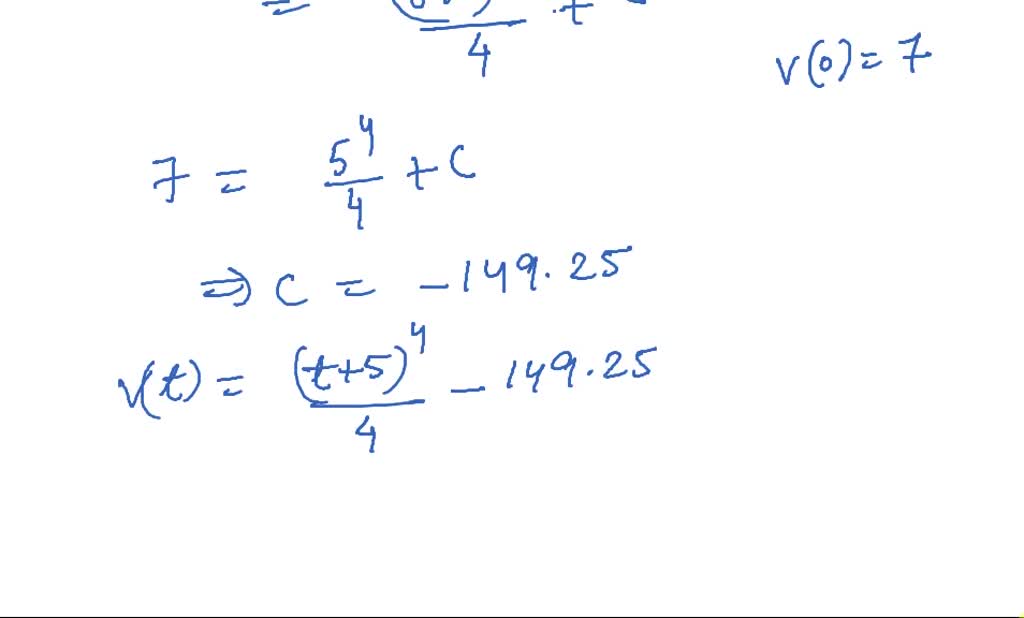 4
v(0) = 7
7 = 5^4/4 + C
⇒ C = -149.25
v(t) = (t+5)^4/4 - 149.25